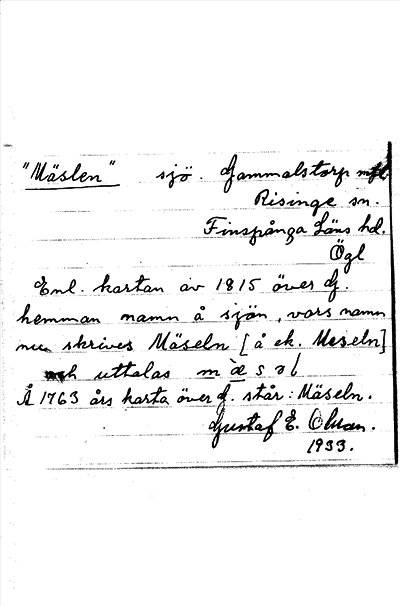 "Mäslen" sjö. Gammalstorp mfl
Risinge sn.
Finspånga Läns hd.
Ögl
Enl. kartan av 1815 över G.
hemman namn å sjön, vars namn
nu skrives Mäseln [å ek. Meseln]
och uttalas mæ̀səl
Å 1763 års karta över G. står: Mäseln.
Gustaf E. Olman.
1933.